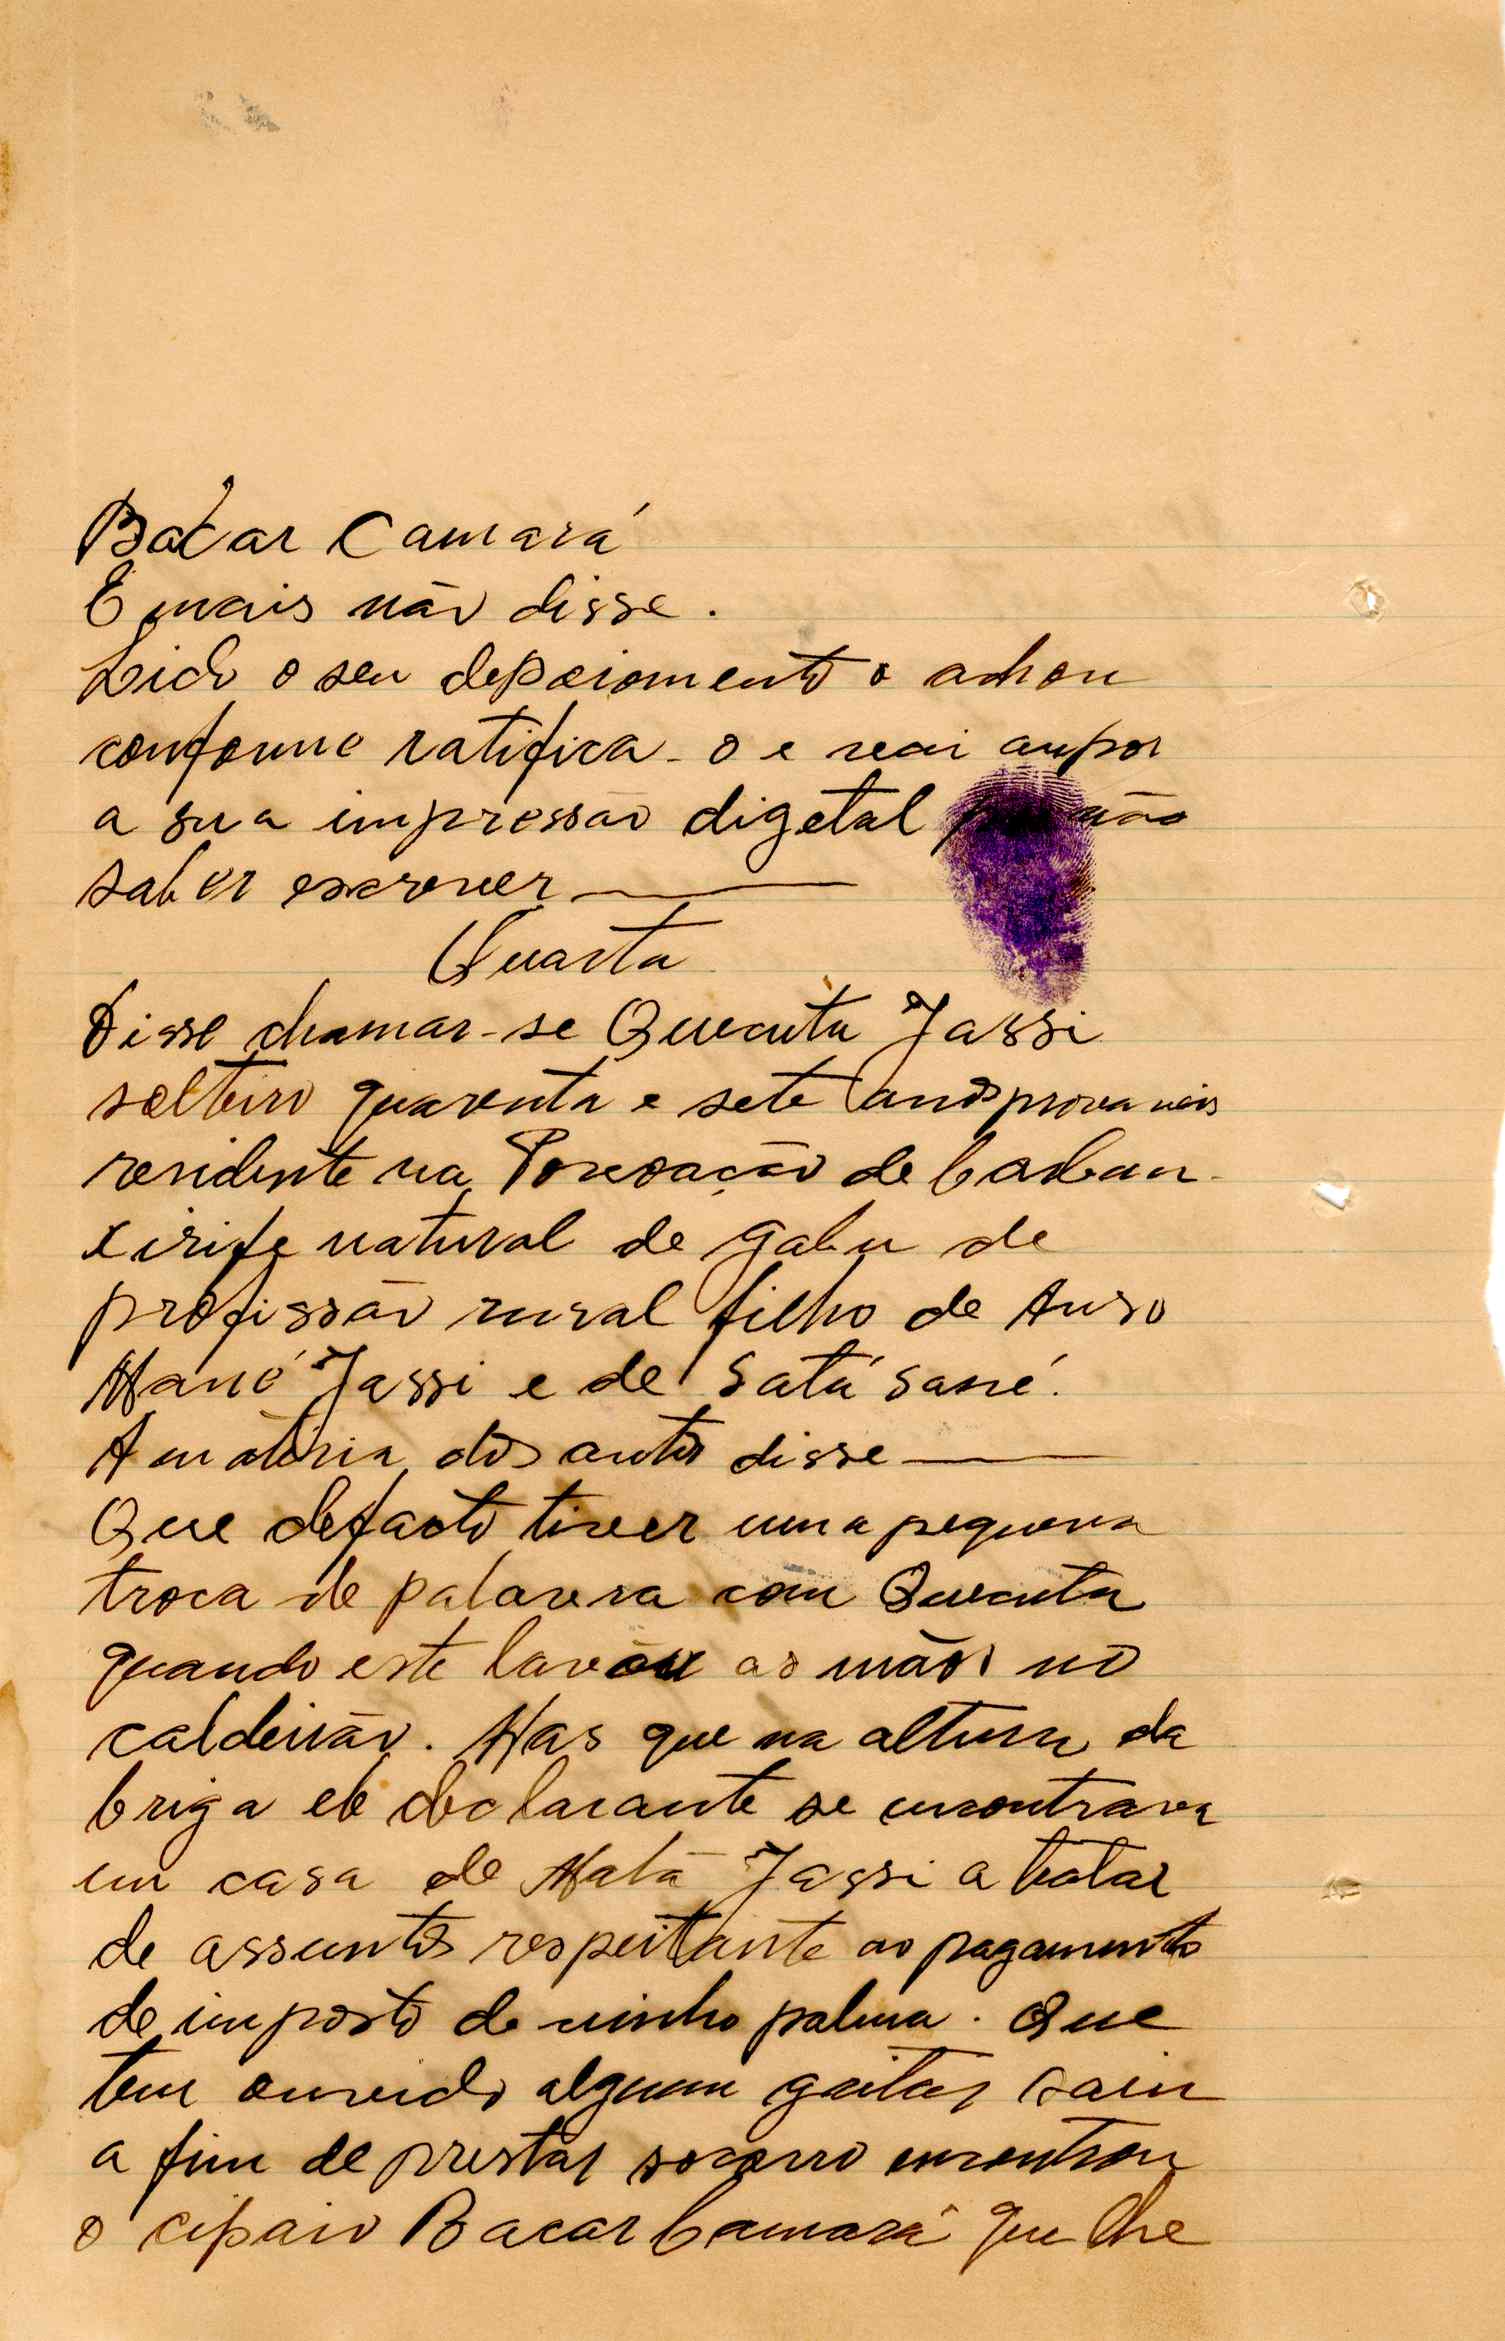 Bacar Camará
E mais não disse.
Lido o seu depoiomento o achou
conforme ratifica-o e vai aupor
a sua impressão digetal por não
saber escrever
Quarta
Disse chamar-se Quecuta Jassi
solteiro quarenta e sete anos provaveis
residente na Povoação de Caban-
xirife natural de Gabu de
profissão rural filho de
Mané Jassi e de Satá Sané.
A matéria dos autos disse
Que defacto tiver uma pequena
troca de palavra com Quecuta
quando este lavou as mãos no
caldeirão. Mas que na altura da
briga ele declarante se encontrava
em casa de Malã Jassi a tratar
de assuntos respeitante ao pagamento
de imposto de vinho palma. Que
tem ouvido algum gritos saiu
a fim de prestar socorro encontrou
o cipaio Bacar Camará que lhe